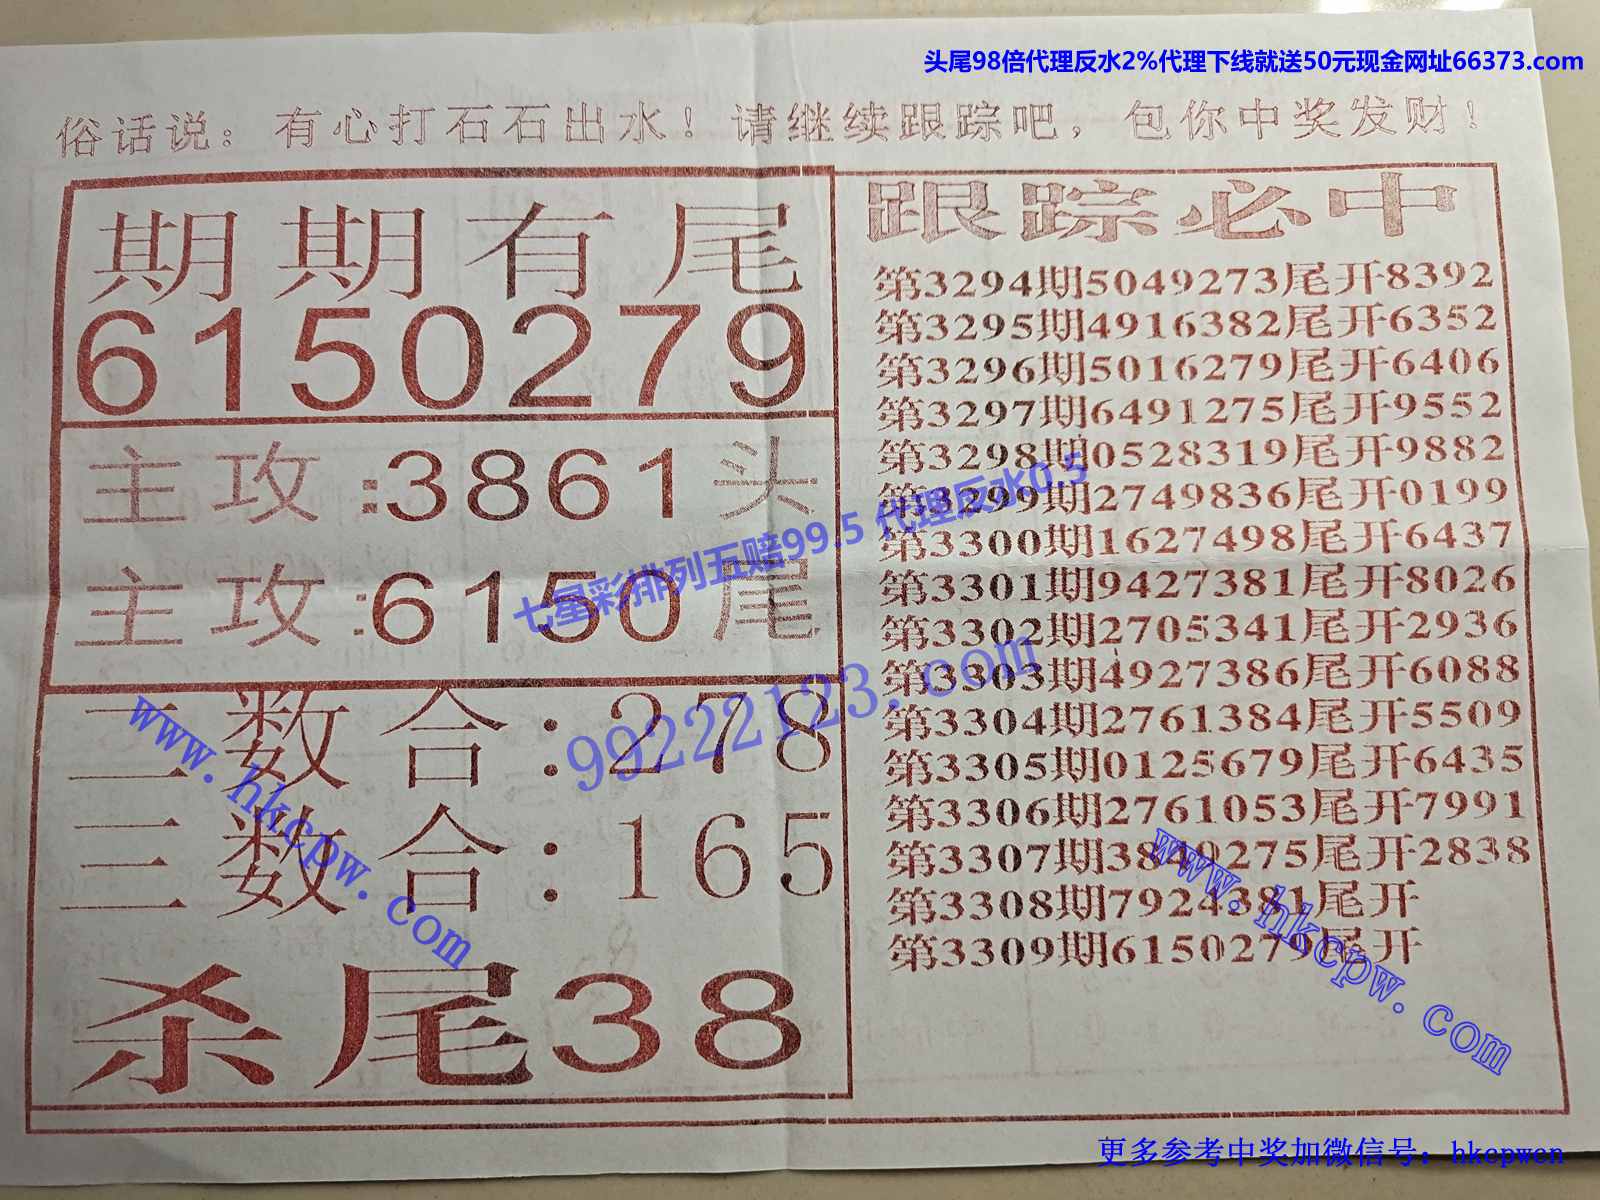 头尾98倍代理反水2%代理下线就送50元现金网址66373.com
俗话说：有心打石石出水！请继续跟踪吧，包你中奖发财！
期期有尾
6150279
主攻:3861头
主攻:6150尾
二数合:278
三数合:165
杀尾38
跟踪必中
第3294期5049273尾开8392
第3295期4916382尾开6352
第3296期5016279尾开6406
第3297期6491275尾开9552
第3298期0528319尾开9882
第3299期2749836尾开0199
第3300期1627498尾开6437
第3301期9427381尾开8026
第3302期2705341尾开2936
第3303期4927386尾开6088
第3304期2761384尾开5509
第3305期0125679尾开6435
第3306期2761053尾开7991
第3307期3849275尾开2838
第3308期7924381尾开
第3309期6150279尾开
七星彩排列五赔99.5 代理反水0.5
99222123.com
www.hkcpw.com
www.hkcpw.com
更多参考中奖加微信号：hkcpwcn